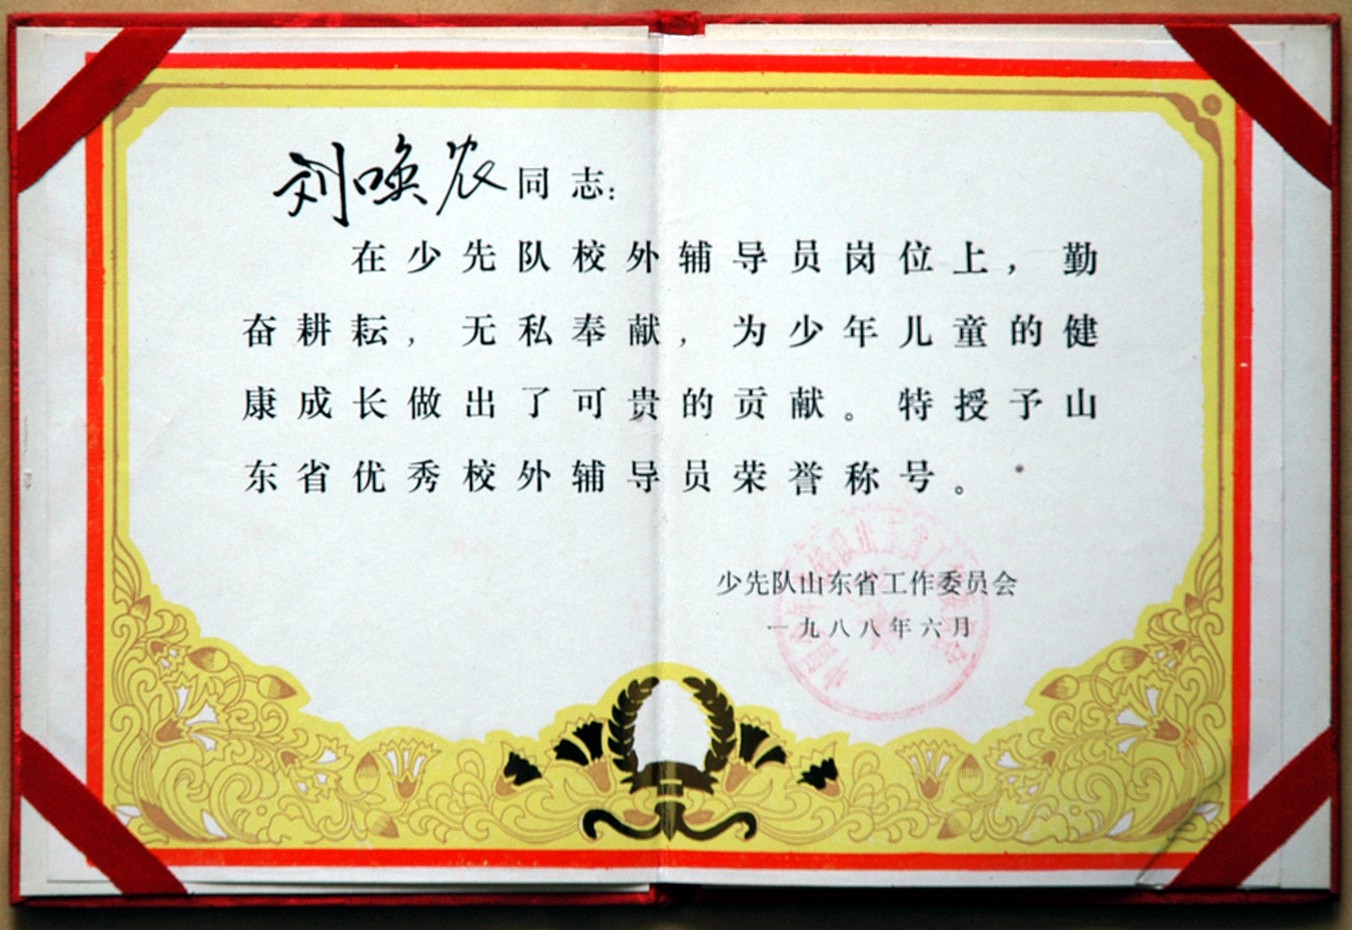 刘唤农同志：
在少先队校外辅导员岗位上，勤
奋耕耘，无私奉献，为少年儿童的健
康成长做出了可贵的贡献。特授予山
东省优秀校外辅导员荣誉称号。
少先队山东省工作委员会
一九八八年六月